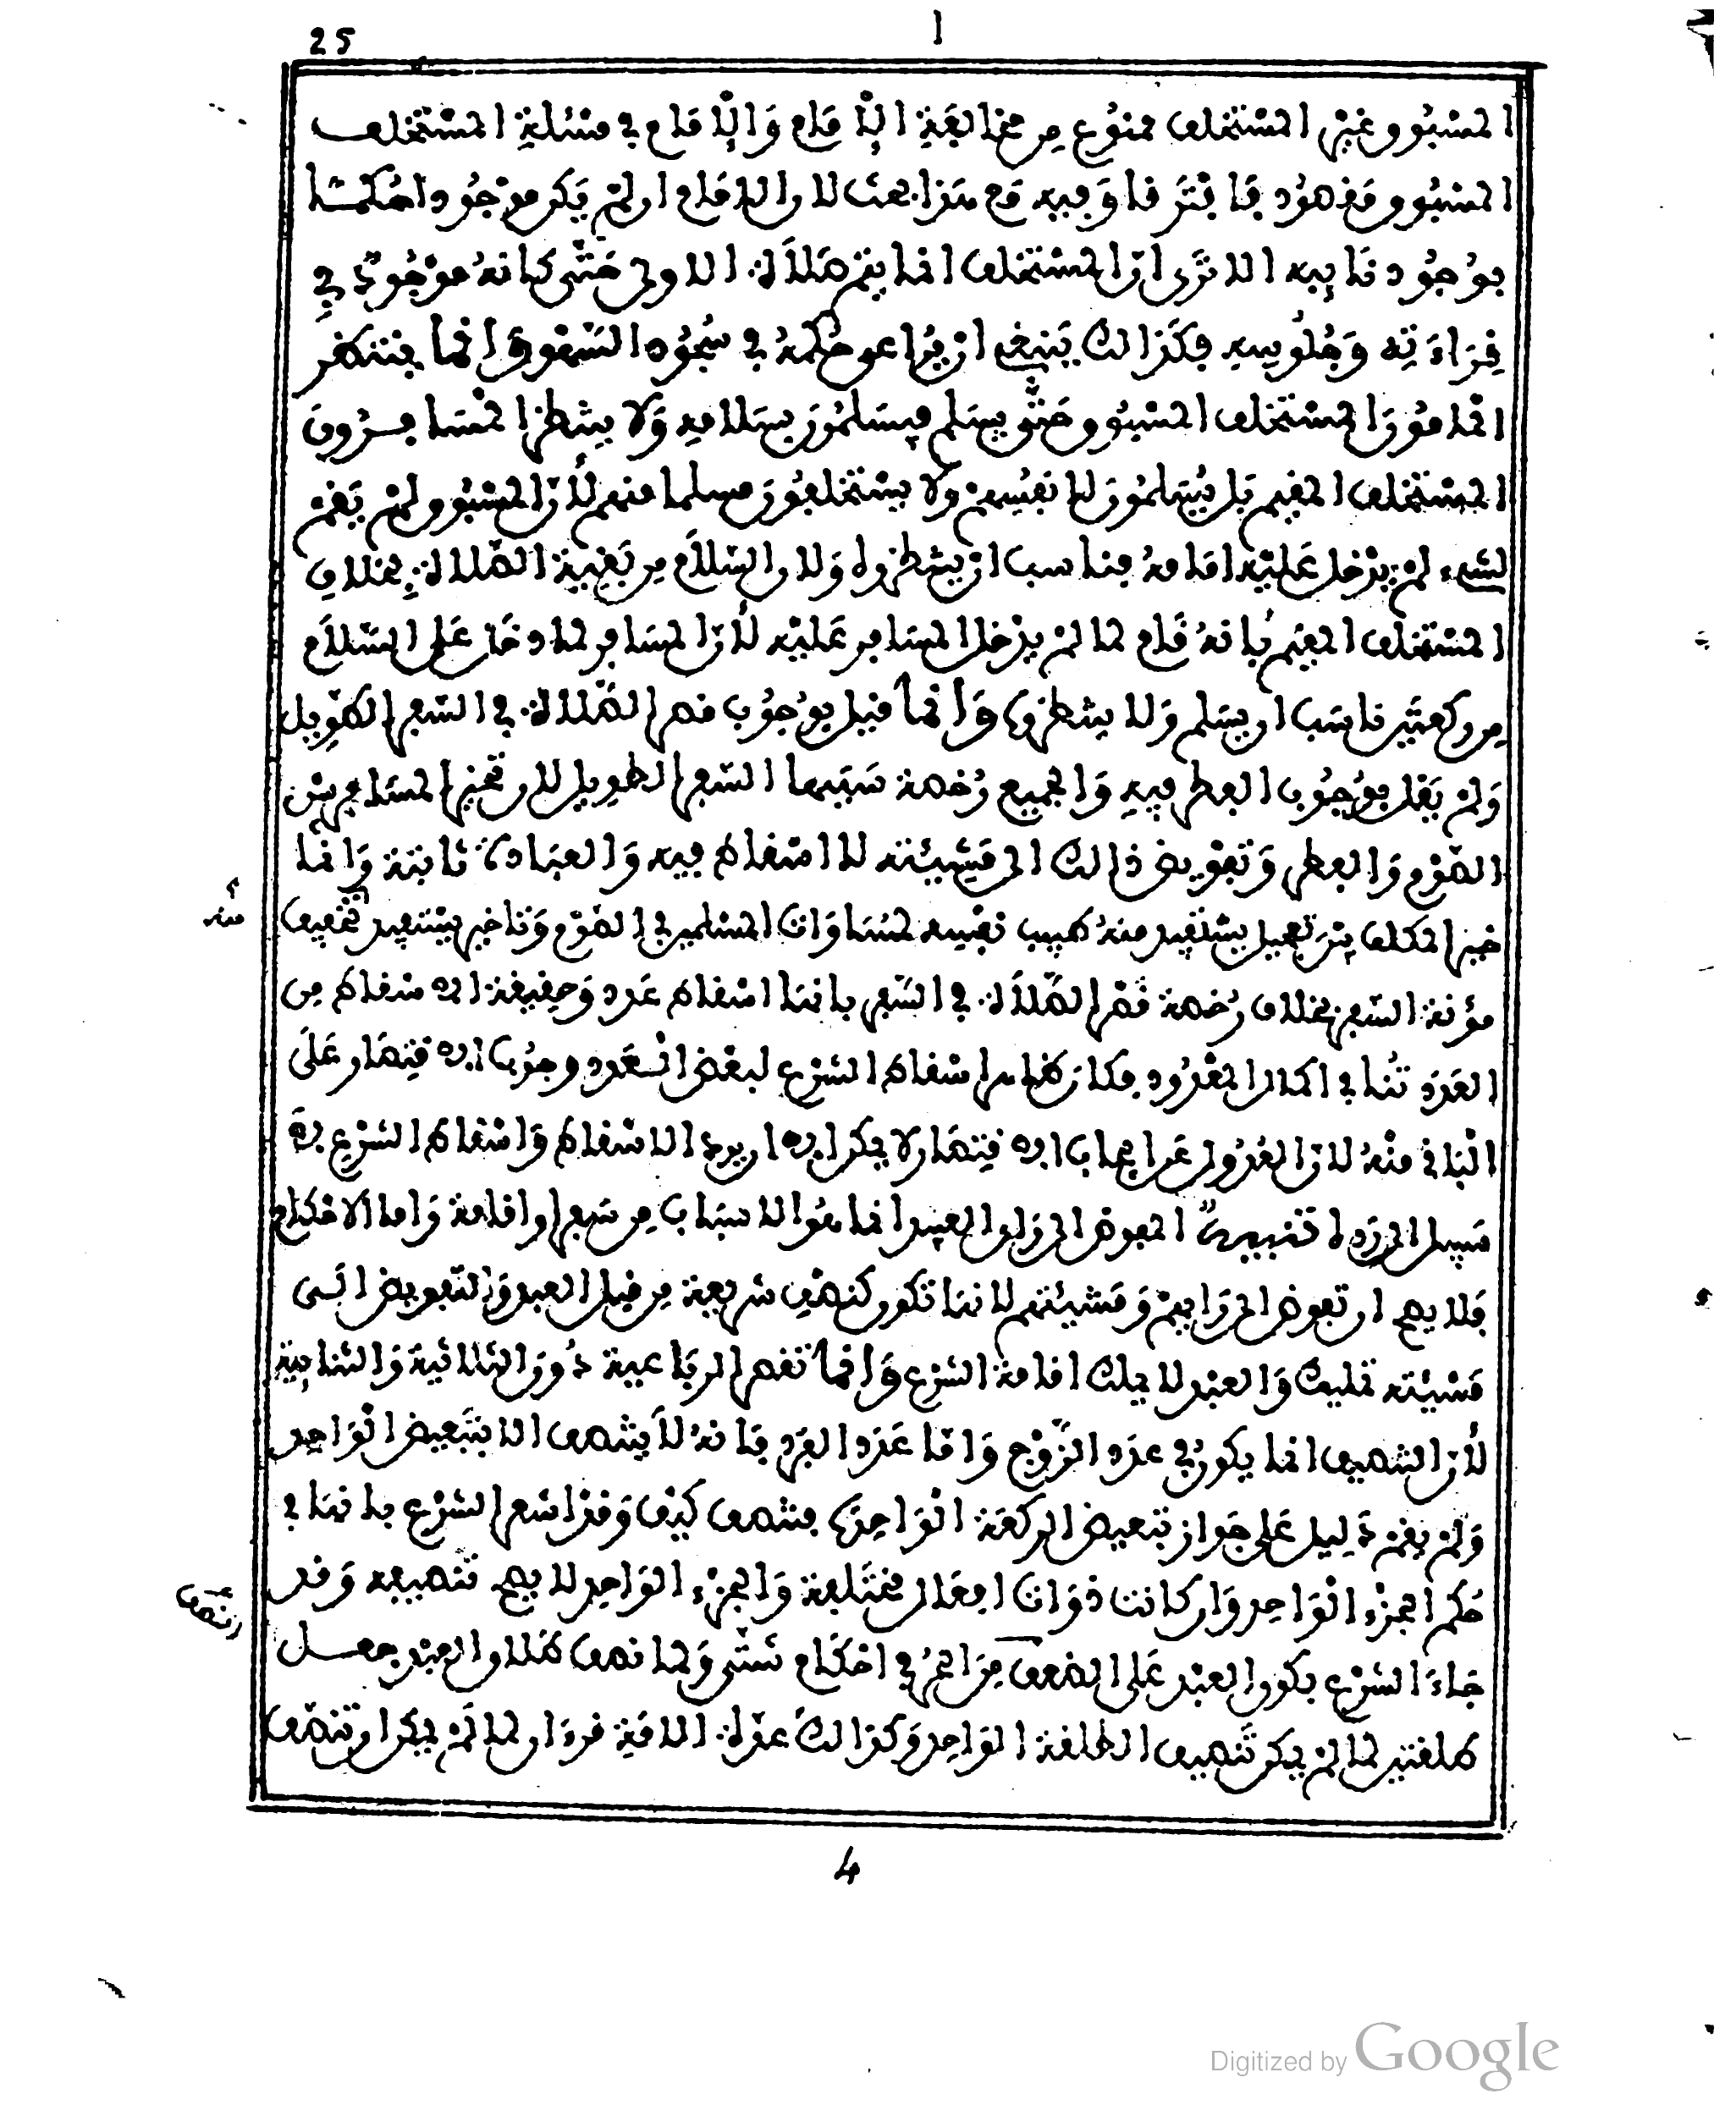 25
ا
المسبوق غير المستخلف ممنوع من مخالفة الإمام والإمام في مسئلة المستخلف
المسبوق مفقود فافترقا وفيه مع هذا بحث لأن الإمام ان لم يكن موجودا حكما
بوجود نايبه الا ترى ان المستخلف انما يتم صلاة الاول حتى كانه موجود في
قراءته وجلوسه فكذالك ينبغي ان يراعى حكمه في سجود السهو وانما ينتظر
المامون المستخلف المسبوق حتى يسلم فيسلمون بسلامه ولا ينتظر المسافرون
المستخلف المقيم بل يسلمون لانفسهم ولا يستخلفون مسلما منهم لأن المسبوق لمن يقم
لشيء لم يدخل عليه امامه فناسب ان ينتظروه ولان السلام من بقية الصلاة بخلاف
المستخلف المقيم فانه قام لما لم يدخل المسافر عليه لأن المسافر لما دخل على السلام
من ركعتين ناسب ان يسلم ولا ينتظره وانما قيل بوجوب قصر الصلاة في السفر الطويل
ولم يقل بوجوب الفطر فيه والجميع رخصة سببها السفر الطويل لان تخيير المسافر بين
الصوم والفطر وتفويض ذالك الى مشيئته لا اسقاط فيه والعبادة ثابتة وانما
خير المكلف بين تعجيل يستفيد منه طيب نفسه لمساوات المسلمين في الصوم وتاخير يستفيد تخفيف
مؤنة السفر بخلاف رخصة قصر الصلاة في السفر بانها اسقاط عدد وحقيقة الاسقاط من
العدد تنافي اكمال المعدود فكان ظاهر اسقاط الشرع لبعض العدد وجوب الاقتصار على
الباقي منه لان العدول عن ايجاب الاقتصار لا يمكن الا ان يرد الاسقاط واسقاط الشرع لا
سبيل الى رده تنبيه المفوض الى راي العبيد انما هو الاسباب من سفر او اقامة واما الاحكام
فلا يصح ان تفوض الى رايهم ومشيئتهم لانها تكون كنصب شريعة من قبل العبد والتفويض الى
مشيئته تمليك والعبد لا يملك اقامة الشرع وانما تقصر الرباعية دون الثلاثية والثنايية
لأن التنصيف انما يكون في عدد الزوج واما عدد الفرد فانه لا يتنصف الا بتبعيض الواحد
ولم يقم دليل على جواز تبعيض الركعة الواحدة فتنصف كيف وقد اشعر الشرع بانها في
حكم الجزء الواحد وان كانت ذوات افعال مختلفة والجزء الواحد لا يصح تنصيفه وقد
جاء الشرع بكون العبد على النصف من الحر في احكام شتى ولما نصف طلاق العبد جعل
طلقتين لما لم يمكن تنصيف الطلقة الواحد وكذالك عدة الامة قرءان لما لم يمكن ان تنصف
منه
تنصف
4
Digitized by Google